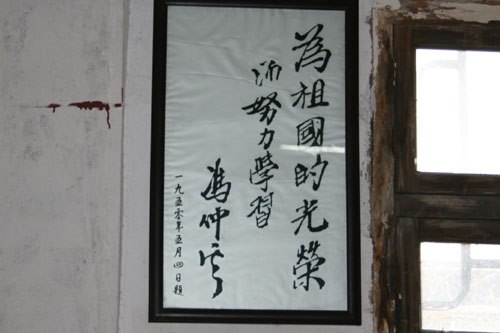 為祖國的光榮
而努力學習
馮仲雲
一九五零年五月四日題